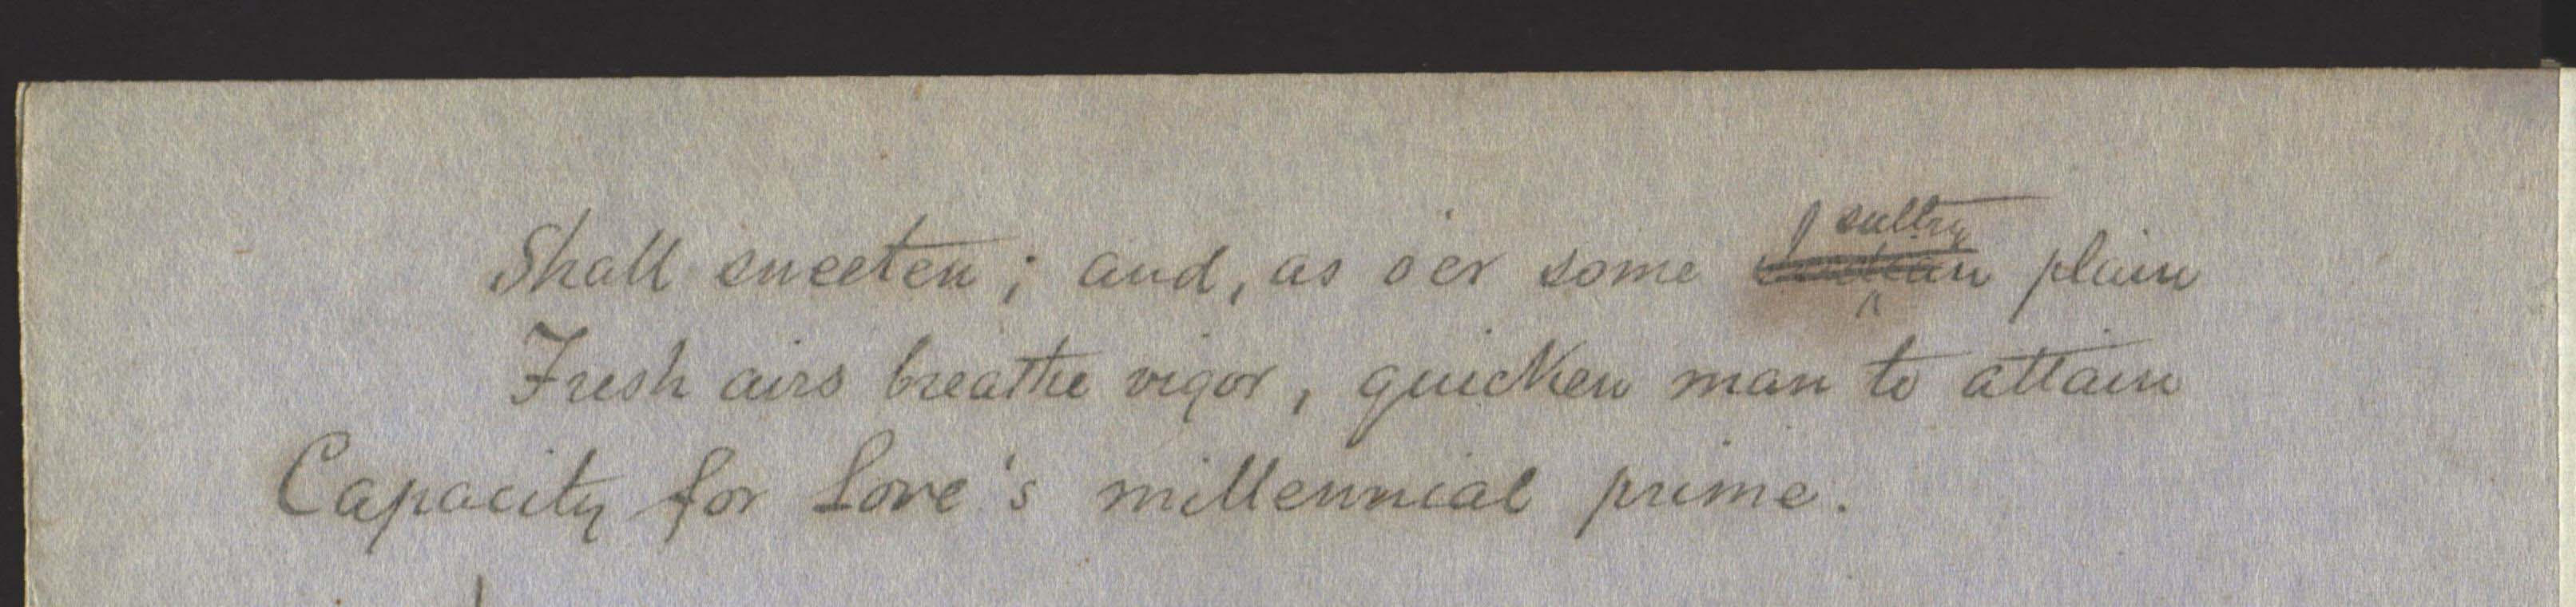 Shall sweeten; and, as o'er some sultry plain
Fresh airs breathe vigor, quicken man to attain
Capacity for Love's millennial prime.